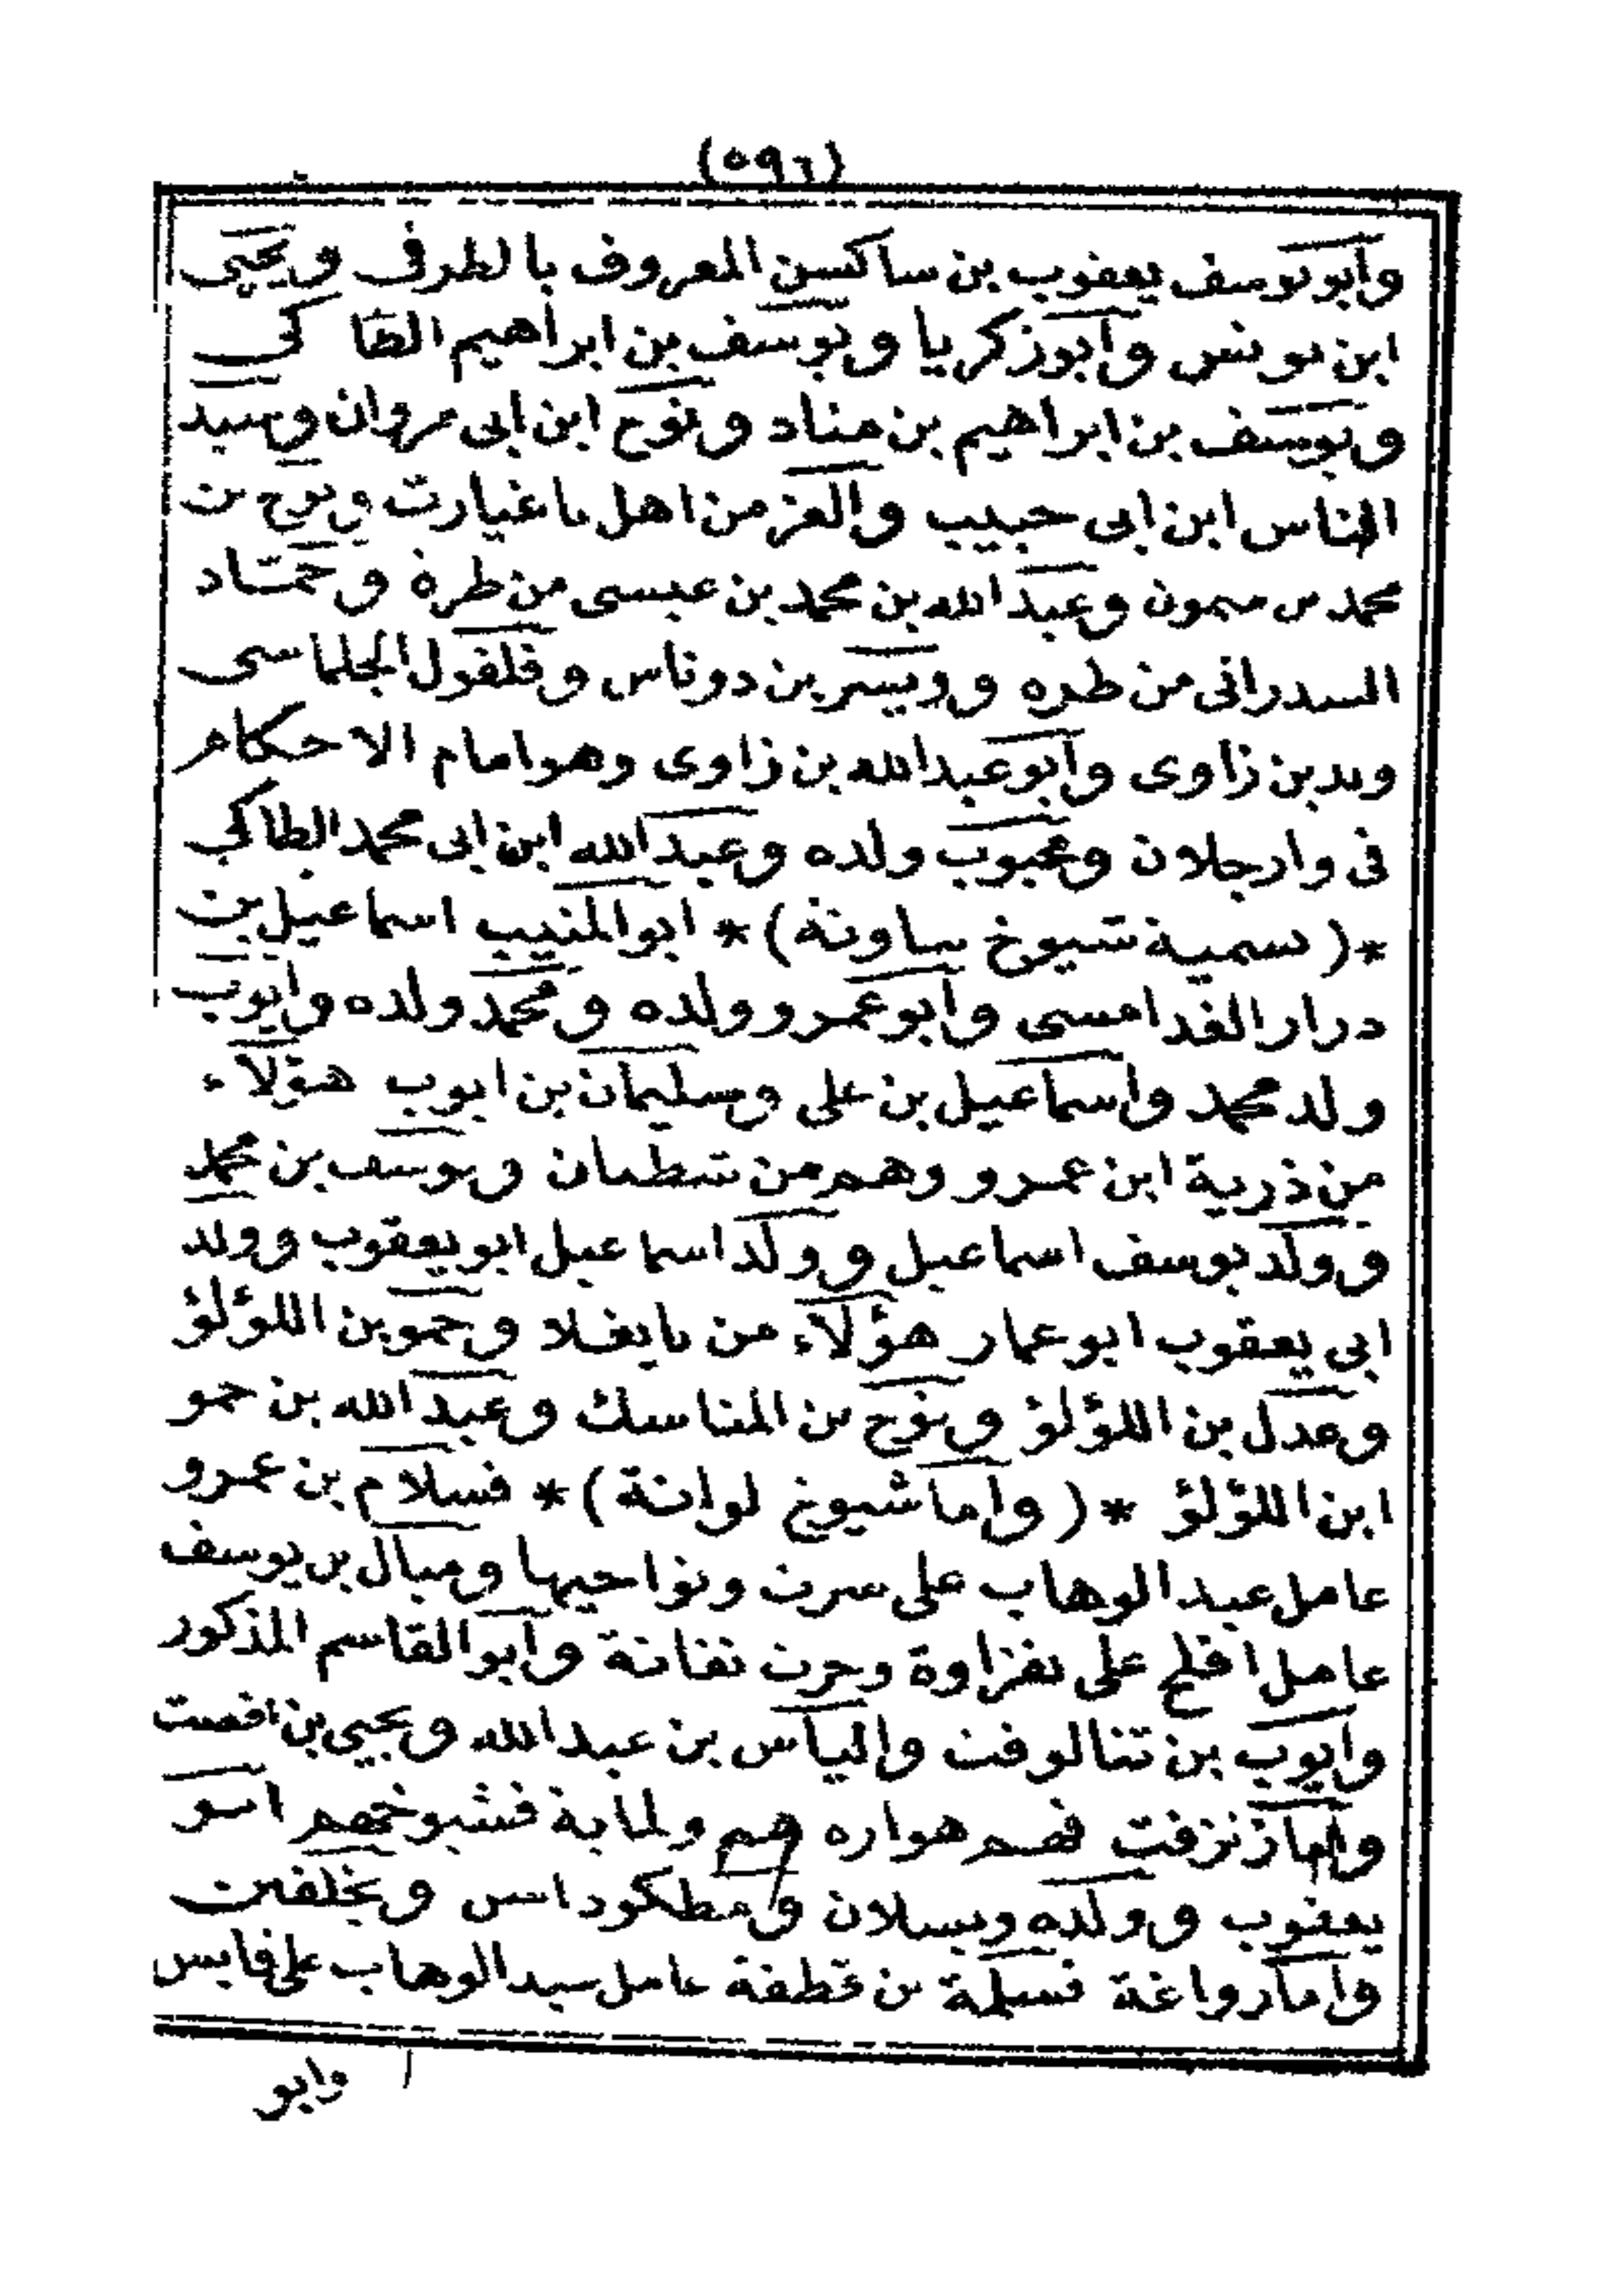 (٥٩٦)
وأبو يوسف يعقوب بن ساكسن المعروف بالطرفى ويحيى
ابن يونس وأبو زكريا ويوسف بن ابراهيم الطاكى
ويوسف بن ابراهيم بن مناد ونوح ابن ابى مروان وسيد
الناس ابن ابى حبيب والعز من اهل باغيارت ونوح بن
محمد بن ميمون وعبد الله بن محمد بن عيسى من طرة وحمّاد
السدراتى من طره وويسر بن دوناس وفلفول الجلماسى
بن زاوى وأبو عبد الله بن زاوى وهو امام الاحكام
فى وارجلان ومحبوب ولده وعبد الله ابن ابى محمد الطاكى
*(سمية شيوخ ساونة)* ابو المنيب اسماعيل بن
درار الغدامسى وأبو عمرو وولده ومحمد ولده وأيوب
ولد محمد واسماعيل بن على وسليمان بن ايوب هؤلاء
من ذرية ابن عمرو وهم من ويوسف بن محمد
وولد يوسف اسماعيل وولد اسماعيل ابو يعقوب وولد
ابى يعقوب ابو عمار هؤلاء من وحمو بن اللؤلؤ
وعدل بن اللؤلؤ ونوح بن المناسك وعبد الله بن حمو
ابن اللؤلؤ *(واما شيوخ لواتة)* فسلام بن عمرو
عامل عبد الوهاب على سرت ونواحيها وميال بن يوسف
عامل افلح على نفزاوة وجرت نفاثة وأبو القاسم المذكور
وأيوب بن تنالوفت والياس بن عبد الله ويحيى بن
وأما زنزفت فهم هواره هم ولماية فشيوخهم ابو
يعقوب وولده ويسلان ويخلفتن
وأما زواغة فسلمة بن قطفة عامل عبد الوهاب على قابس
وابو